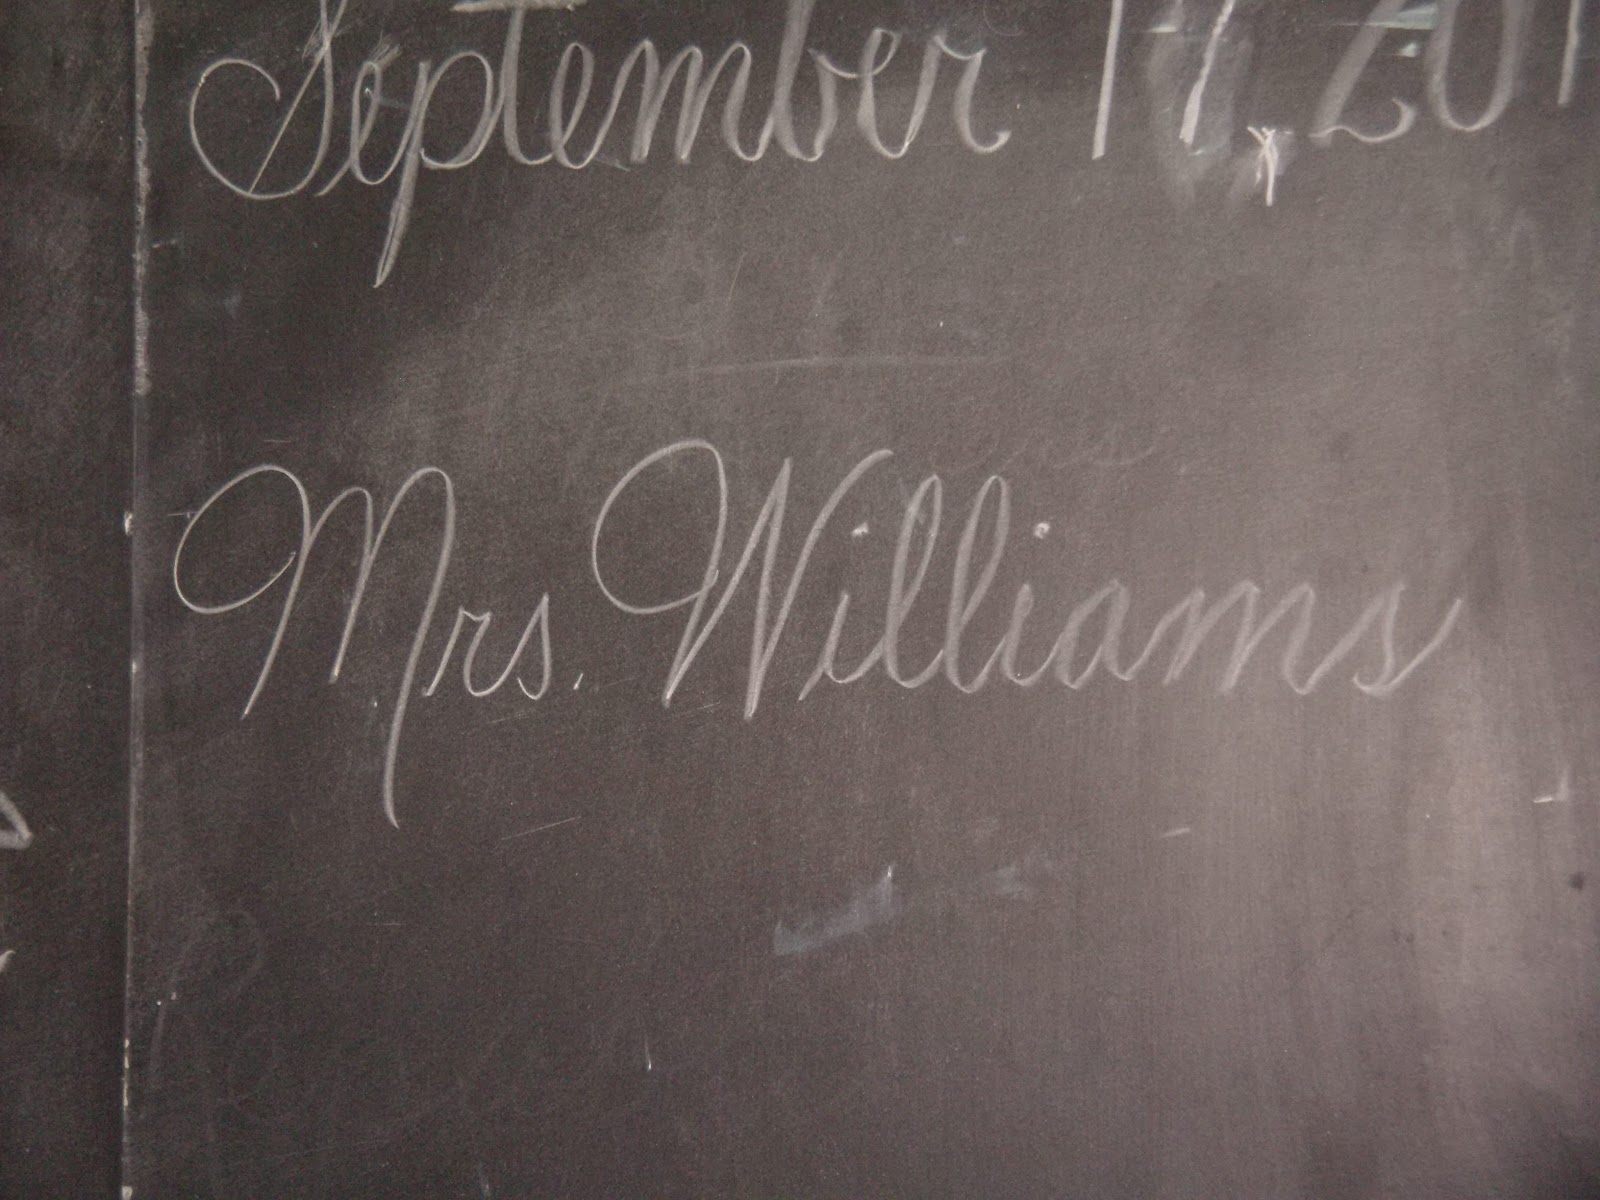 September 17, 201
Mrs. Williams